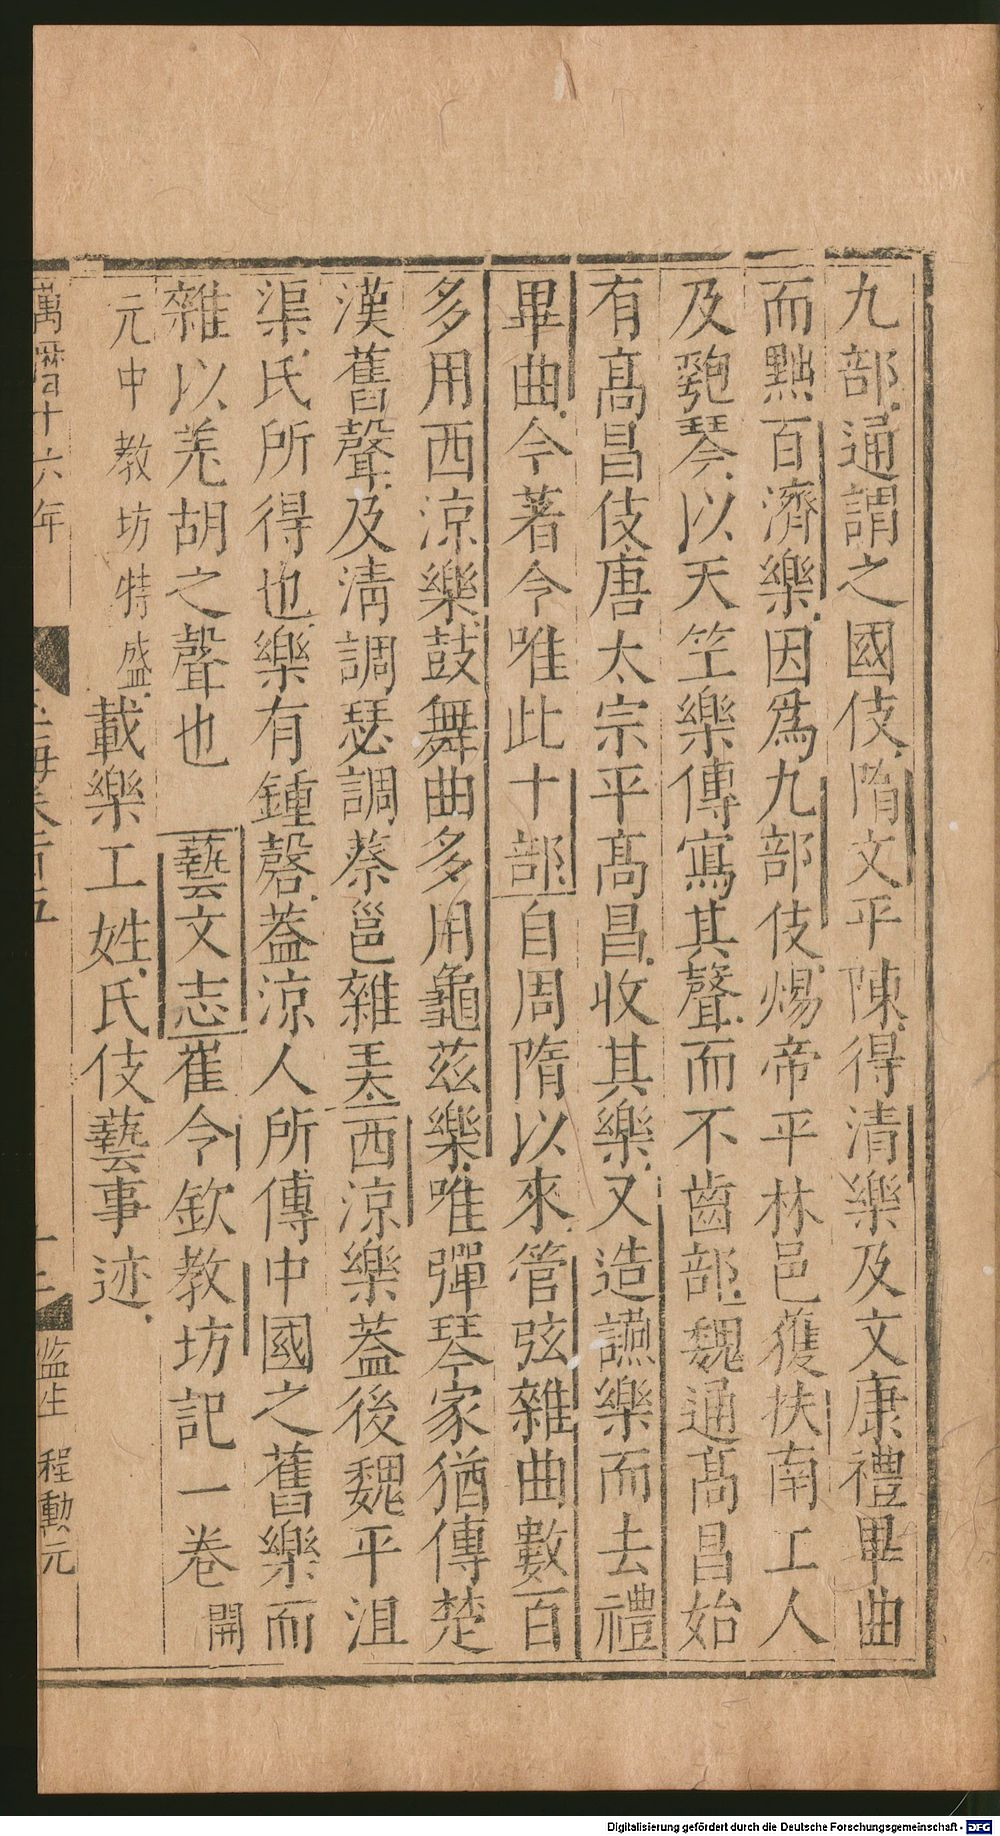 九部通謂之國伎隋文平陳得清樂及文康禮畢曲
而黜百濟樂因爲九部伎煬帝平林邑獲扶南工人
及匏琴以天竺樂傳寫其聲而不齒部魏通高昌始
有高昌伎唐太宗平高昌收其樂又造讌樂而去禮
畢曲今著令唯此十部自周隋以來管弦雜曲數百
多用西涼樂鼓舞曲多用龜茲樂唯彈琴家猶傳楚
漢舊聲及淸調瑟調蔡邕雜弄西涼樂蓋後魏平沮
渠氏所得也樂有鍾磬蓋涼人所傳中國之舊樂而
雜以羌胡之聲也 藝文志崔令欽教坊記一卷 開
元中教坊特盛 載樂工姓氏伎藝事迹
萬曆十六年 玉海卷百五 監生 程勳元
Digitalisierung gefördert durch die Deutsche Forschungsgemeinschaft - DFG